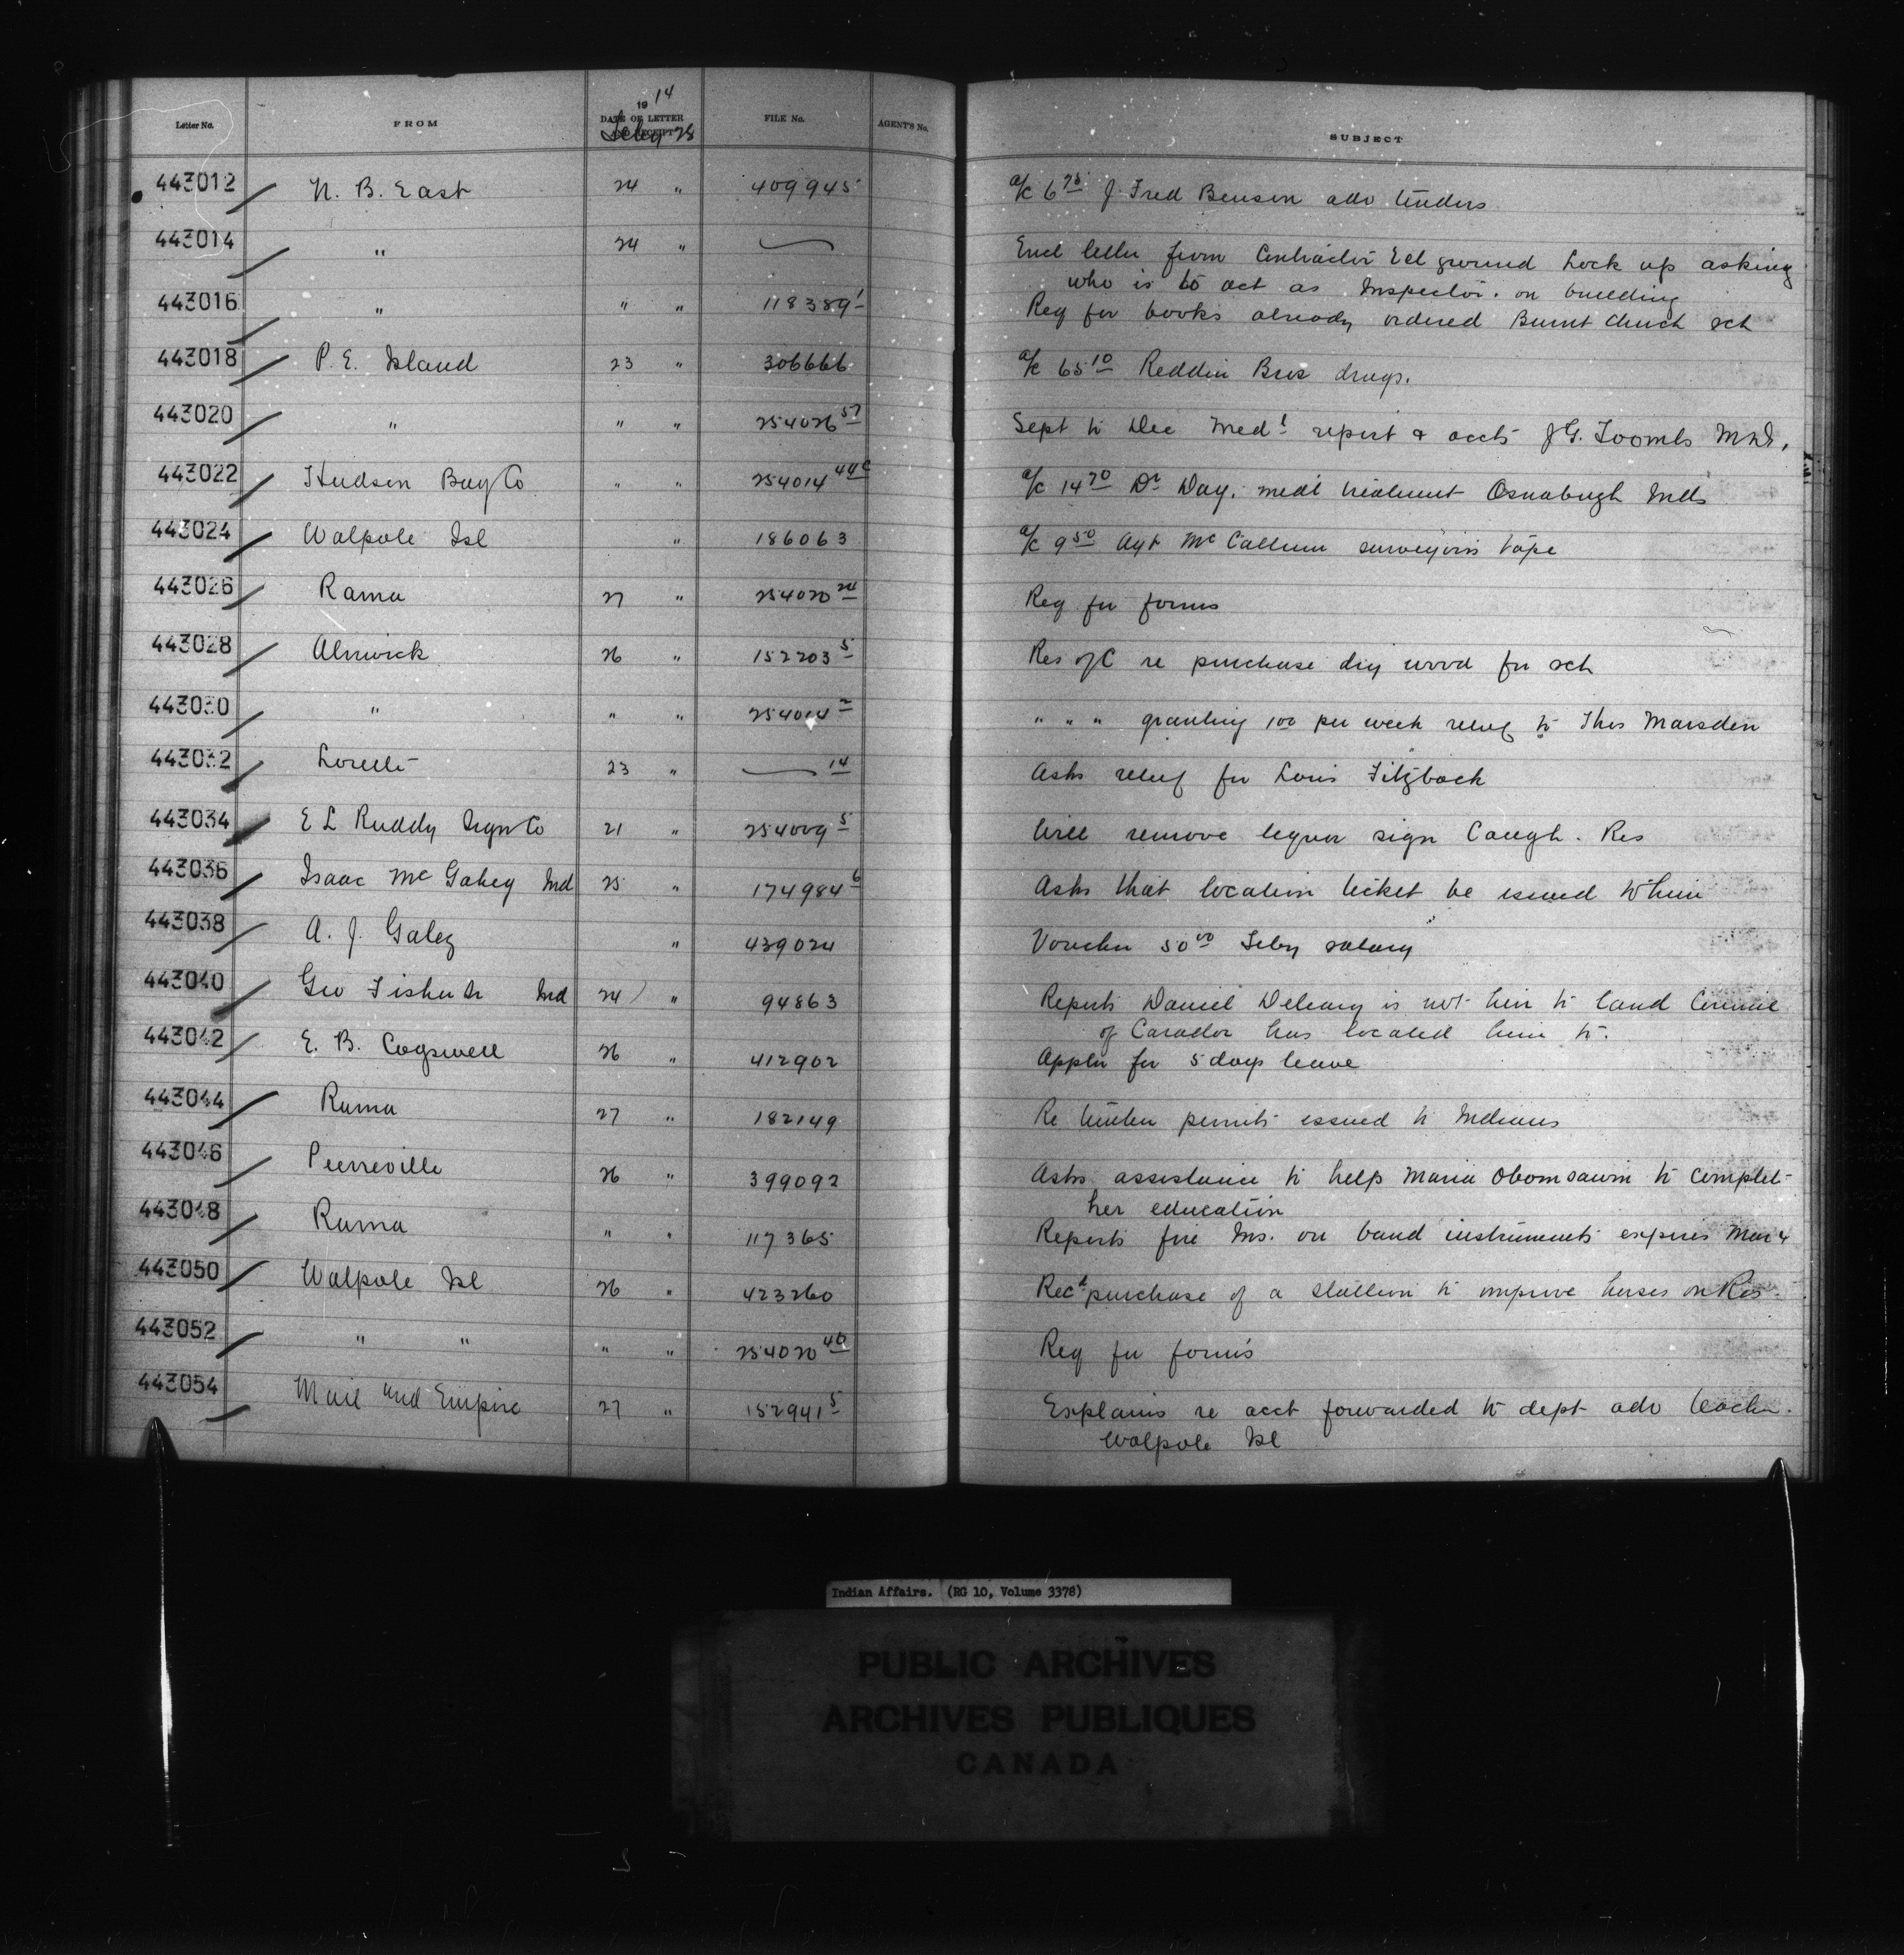 Letter No. FROM 1914 DATE OF LETTER AND RECEIPT Feby 28 FILE No. AGENT'S No. SUBJECT
443012 N. B. East 24 " 409945 a/c 6 75 J. Fred Benson adv tenders
443014 " 24 " Encl letter from Contractor Eel ground Lock up asking
who is to act as Inspector. on building
443016 " " " 118389 1 Req for books already ordered Burnt Church sch
443018 P. E. Island 23 " 306666 a/c 65 10 Reddin Bros drugs.
443020 " " " 254026 57 Sept to Dec Med l report & accts J G. Toombs M.D.
443022 Hudson Bay Co " " 254014 44c a/c 14 70 Dr Day. medl treatment Osnaburgh Inds
443024 Walpole Isl " 186063 a/c 9 50 Agt Mc Callum surveyors tape
443026 Rama 27 " 254020 24 Req for forms
443028 Alnwick 26 " 152203 5 Res of C re purchase dry wood for sch
443030 " " " 254014 2 " " " granting 1 00 per week relief to Thos Marsden
443032 Lorette 23 " 14 Asks relief for Louis Fitzback
443034 E L Ruddy Sign Co 21 " 254009 5 Will remove liquor sign Caugh. Res
443036 Isaac Mc Gahey Ind 25 " 174984 6 Asks that location ticket be issued to him
443038 A. J. Galey " 439024 Voucher 50 00 Feby salary
443040 Geo Fisher Sr Ind 24 " 94863 Reports Daniel Deleary is not heir to land Council
of Carador has located him to.
443042 E. B. Cogswell 26 " 412902 Appln for 5 days leave
443044 Rama 27 " 182149 Re timber permits issued to Indians
443046 Pierreville 26 " 399092 Asks assistance to help Maria Obomsawin to complet
her education
443048 Rama " " 117365 Reports fire Ins. on band instruments expires Mar 4
443050 Walpole Isl 26 " 423260 Rec d purchase of a stallion to improve horses on Res
443052 " " " " 254020 40 Req for forms
443054 Mail and Empire 27 " 152941 5 Explains re acct forwarded to dept adv teacher.
Walpole Isl
Indian Affairs. (RG 10, Volume 3378)
PUBLIC ARCHIVES
ARCHIVES PUBLIQUES
CANADA